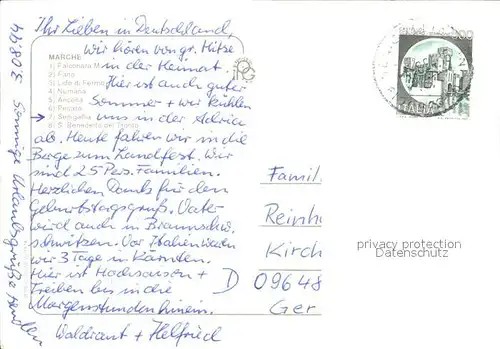 Ihr Lieben in Deutschland,
wir hören von gr. Hitze
in der Heimat.
Hier ist auch guter
Sommer + wir kühlen
uns in der Adria
ab. Heute fahren wir in die
Berge zum Landfest. Wir
sind 25 Pers. Familien.
Herzlichen Dank für den
Geburtstagsgruß. Vater
wird auch in Braunschw.
schwitzen. Vor Italien waren
wir 3 Tage in Kärnten.
Hier ist Hochsaison +
Treiben bis in die
Morgenstunden hinein.
Waldraut + Helfried
3.08.94 Sonnige Urlaubsgrüße senden
MARCHE
1) Falconara M.
2) Fano
3) Lido di Fermo
4) Numana
5) Ancona
6) Pesaro
7) Senigallia
8) S. Benedetto del Tronto
Famil
Reinh
Kirch
D 09648
Ger
privacy protection
Datenschutz